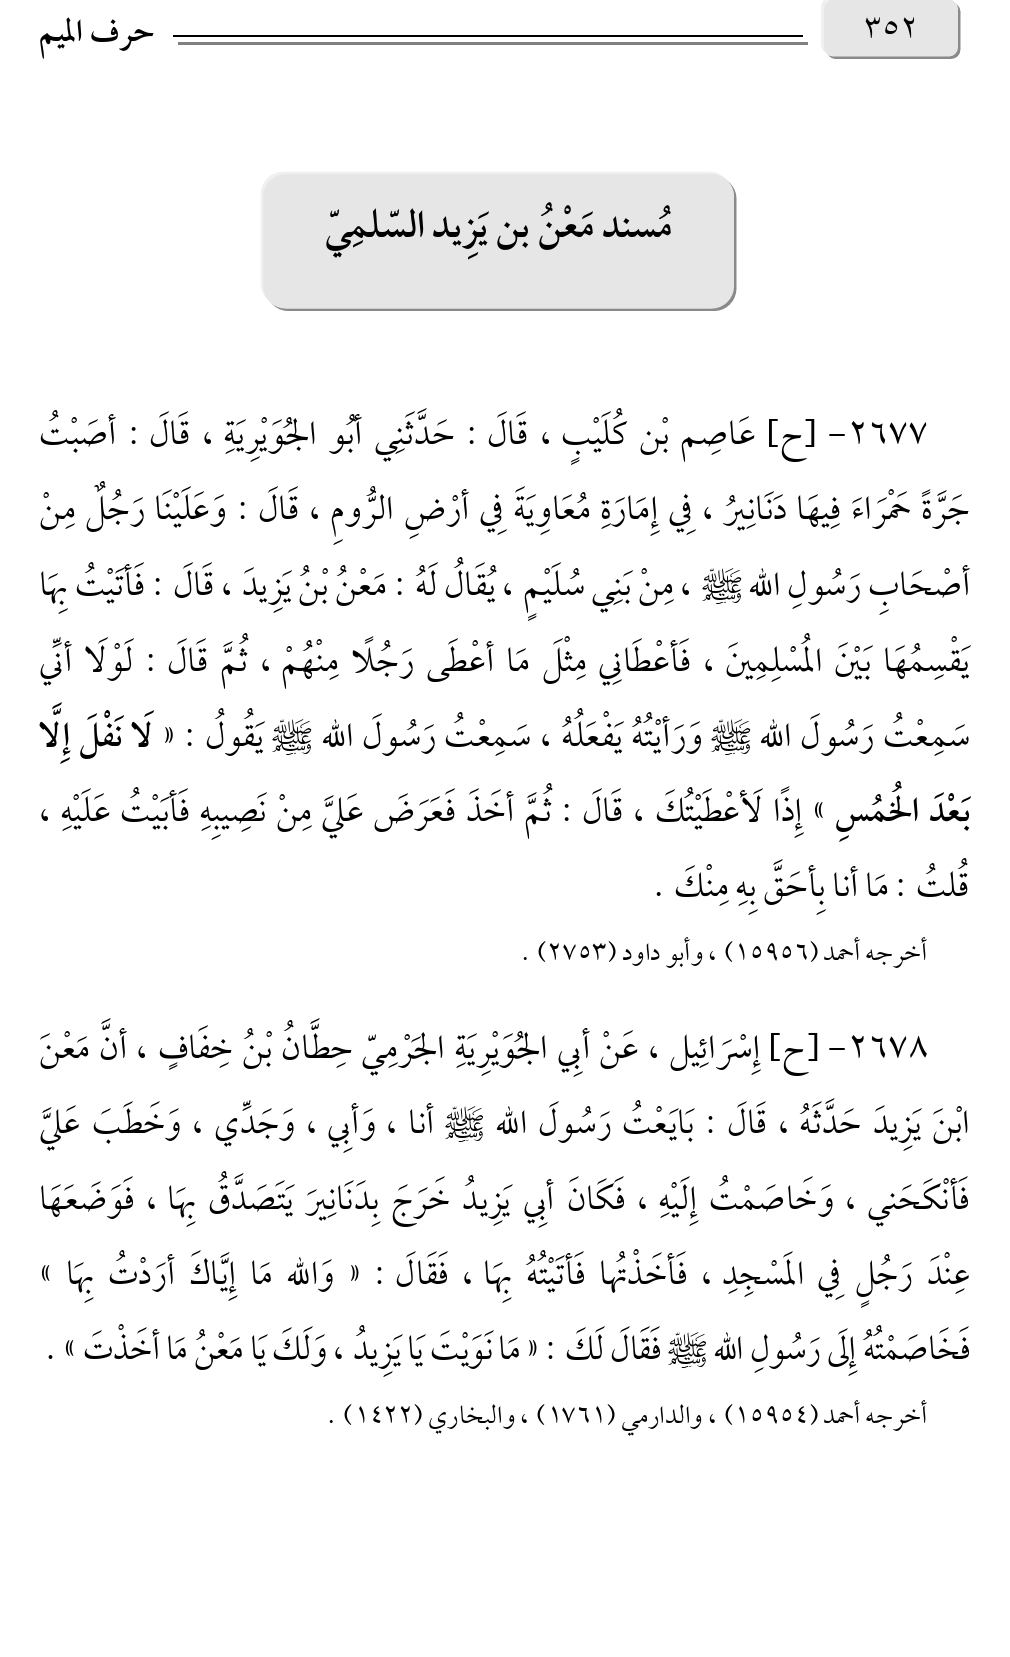 ٣٥٢ حرف الميم
مُسند مَعْنُ بن يَزِيد السّلمِيّ
٢٦٧٧- [ح] عَاصِم بْن كُلَيْبٍ ، قَالَ : حَدَّثَنِي أَبُو الجُوَيْرِيَةِ ، قَالَ : أصَبْتُ
جَرَّةً حَمْرَاءَ فِيهَا دَنَانِيرُ ، فِي إِمَارَةِ مُعَاوِيَةَ فِي أرْضِ الرُّومِ ، قَالَ : وَعَلَيْنَا رَجُلٌ مِنْ
أصْحَابِ رَسُولِ الله ﷺ ، مِنْ بَنِي سُلَيْمٍ ، يُقَالُ لَهُ : مَعْنُ بْنُ يَزِيدَ ، قَالَ : فَأتَيْتُ بِهَا
يَقْسِمُهَا بَيْنَ المُسْلِمِينَ ، فَأعْطَانِي مِثْلَ مَا أعْطَى رَجُلًا مِنْهُمْ ، ثُمَّ قَالَ : لَوْلَا أنِّي
سَمِعْتُ رَسُولَ الله ﷺ وَرَأيْتُهُ يَفْعَلُهُ ، سَمِعْتُ رَسُولَ الله ﷺ يَقُولُ : « لَا نَفْلَ إِلَّا
بَعْدَ الخُمُسِ » إِذًا لَأعْطَيْتُكَ ، قَالَ : ثُمَّ أخَذَ فَعَرَضَ عَليَّ مِنْ نَصِيبِهِ فَأبَيْتُ عَلَيْهِ ،
قُلتُ : مَا أنا بِأحَقَّ بِهِ مِنْكَ .
أخرجه أحمد (١٥٩٥٦) ، وأبو داود (٢٧٥٣) .
٢٦٧٨- [ح] إِسْرَائِيل ، عَنْ أبِي الجُوَيْرِيَةِ الجَرْمِيّ حِطَّانُ بْنُ خِفَافٍ ، أنَّ مَعْنَ
ابْنَ يَزِيدَ حَدَّثَهُ ، قَالَ : بَايَعْتُ رَسُولَ الله ﷺ أنا ، وَأبِي ، وَجَدِّي ، وَخَطَبَ عَليَّ
فَأنْكَحَني ، وَخَاصَمْتُ إِلَيْهِ ، فَكَانَ أبِي يَزِيدُ خَرَجَ بِدَنَانِيرَ يَتَصَدَّقُ بِهَا ، فَوَضَعَهَا
عِنْدَ رَجُلٍ فِي المَسْجِدِ ، فَأخَذْتُها فَأتَيْتُهُ بِهَا ، فَقَالَ : « وَالله مَا إِيَّاكَ أرَدْتُ بِهَا »
فَخَاصَمْتُهُ إِلَى رَسُولِ الله ﷺ فَقَالَ لَكَ : « مَا نَوَيْتَ يَا يَزِيدُ ، وَلَكَ يَا مَعْنُ مَا أخَذْتَ » .
أخرجه أحمد (١٥٩٥٤) ، والدارمي (١٧٦١) ، والبخاري (١٤٢٢) .